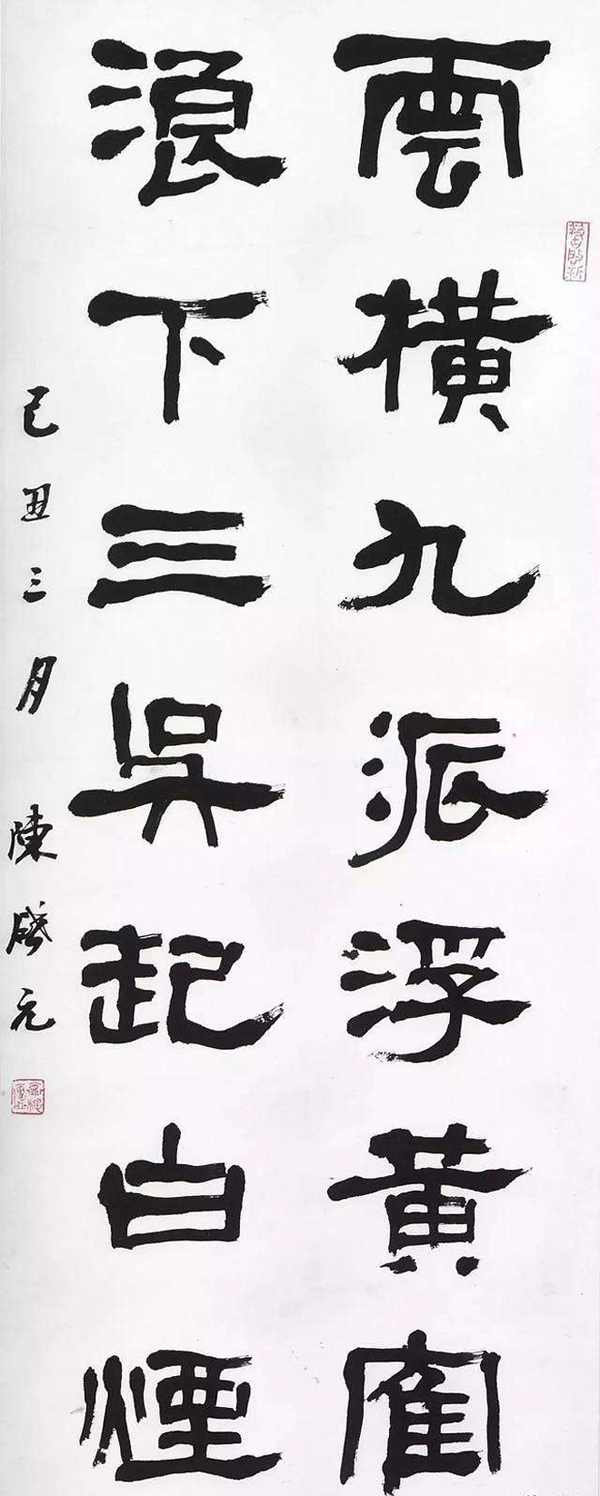 雲橫九派浮黃隺
浪下三吳起白煙
己丑三月 陳啓元